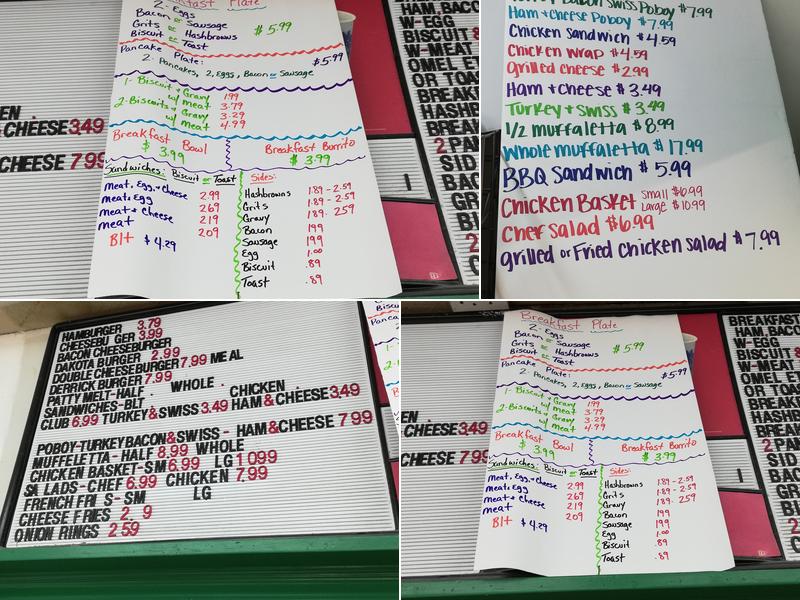 Breakfast Plate
2-Eggs
Bacon or Sausage
Grits or Hashbrowns
Biscuit or Toast
$5.99
Pancake Plate:
$5.99
2-Pancakes, 2, Eggs, Bacon or Sausage
1-Biscuit + Gravy 1.99
w/ meat 3.79
2-Biscuits + Gravy 3.29
w/ meat 4.99
Breakfast Bowl
$3.99
Breakfast Burrito
$3.99
Sandwiches: Biscuit or Toast
Meat, Egg, + Cheese 2.99
Meat + Egg 2.69
Meat + Cheese 2.19
meat 2.09
Blt $4.29
Sides:
Hashbrowns 1.89 - 2.59
Grits 1.89 - 2.59
Gravy 1.89. 2.59
Bacon 1.99
Sausage 1.99
Egg 1.00
Biscuit .89
Toast .89
EN
CHEESE 3.49
CHEESE 7 99
HAM, BACO
W-EGG
BISCUIT
W-MEAT
OMELET
OR TOA
BREAKF
HASHB
BREAK
2 PAN
SID
BAC
Bacon Swiss Poboy $7.99
Ham + Cheese Poboy $7.99
Chicken Sandwich $4.59
Chicken Wrap $4.59
grilled cheese $2.99
Ham + cheese $3.49
Turkey + Swiss $3.49
1/2 muffaletta $8.99
Whole muffaletta $17.99
BBQ Sandwich $5.99
Chicken Basket Small $6.99
Large $10.99
Chef Salad $6.99
grilled or Fried chicken salad $7.99
HAMBURGER 3.79
CHEESEBU GER 3.99
BACON CHEESEBURGER
DAKOTA BURGER 2.99
DOUBLE CHEESEBURGER 7.99 MEAL
DERRICK BURGER 7.99
PATTY MELT-HALF . WHOLE . CHICKEN .
SANDWICHES-BLT
CLUB 6.99 TURKEY&SWISS 3.49 HAM&CHEESE 3.49
POBOY-TURKEYBACON&SWISS - HAM&CHEESE 7 99
MUFFELETTA-HALF 8.99 WHOLE
CHICKEN BASKET-SM 6.99 LG 1 099
SA LADS-CHEF 6.99 CHICKEN 7.99
FRENCH FRI S-SM LG
CHEESE FRIES 2 9
ONION RINGS 2 59
Breakfast Plate
2-Eggs
Bacon or Sausage
Grits or Hashbrowns
Biscuit or Toast
$5.99
Pancake Plate:
$5.99
2-Pancakes, 2, Eggs, Bacon or Sausage
1-Biscuit + Gravy 1.99
w/ meat 3.79
2-Biscuits + Gravy 3.29
w/ meat 4.99
Breakfast Bowl
$3.99
Breakfast Burrito
$3.99
Sandwiches: Biscuit or Toast
Meat, Egg, + Cheese 2.99
Meat + Egg 2.69
Meat + Cheese 2.19
meat 2.09
Blt $4.29
Sides:
Hashbrowns 1.89 - 2.59
Grits 1.89 - 2.59
Gravy 1.89. 2.59
Bacon 1.99
Sausage 1.99
Egg 1.00
Biscuit .89
Toast .89
EN
CHEESE 3.49
CHEESE 7 99
BREAKFAST
HAM, BACO
W-EGG
BISCUIT
W-MEAT
OMEL ET
OR TOAS
BREAKFA
HASHBR
BREAKF
2 PAN
SID
BAC